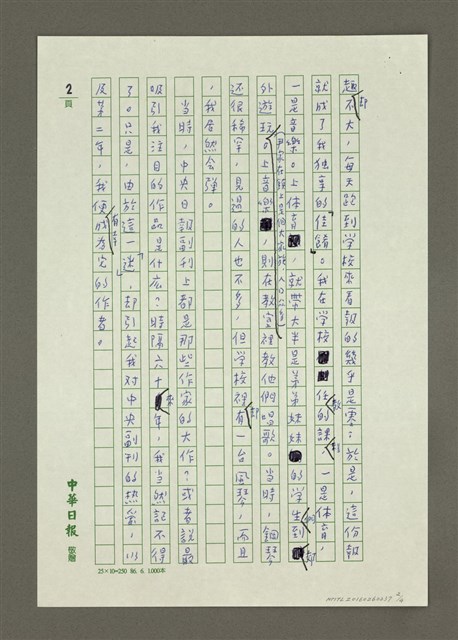 趣不大，每天踱到学校來看報的幾乎是零；於是，這份報
就成了我独享的「佳餚」。我在学校任教的課程，一是体育，
一是音樂。上体育，就帶大半是弟弟妹妹的学生們到
外边遊玩。上音樂，則在教室裡教他們唱歌。当時，鋼琴
还很稀罕，見過的人也不多，但学校裡却有一台風琴，而且
，我居然会彈。
当時，中央日報副刊上都是那些作家的大作？或者說最
吸引我注目的作品是什麼？時隔六十來年，我当然記不得
了。只是，由於這一「迷」，却引起我对中央副刊的热爱，以
及某二年，我有幸便成為它的作者。
2
頁
中華日報
敬贈
25×10=250 86. 6. 1,000本